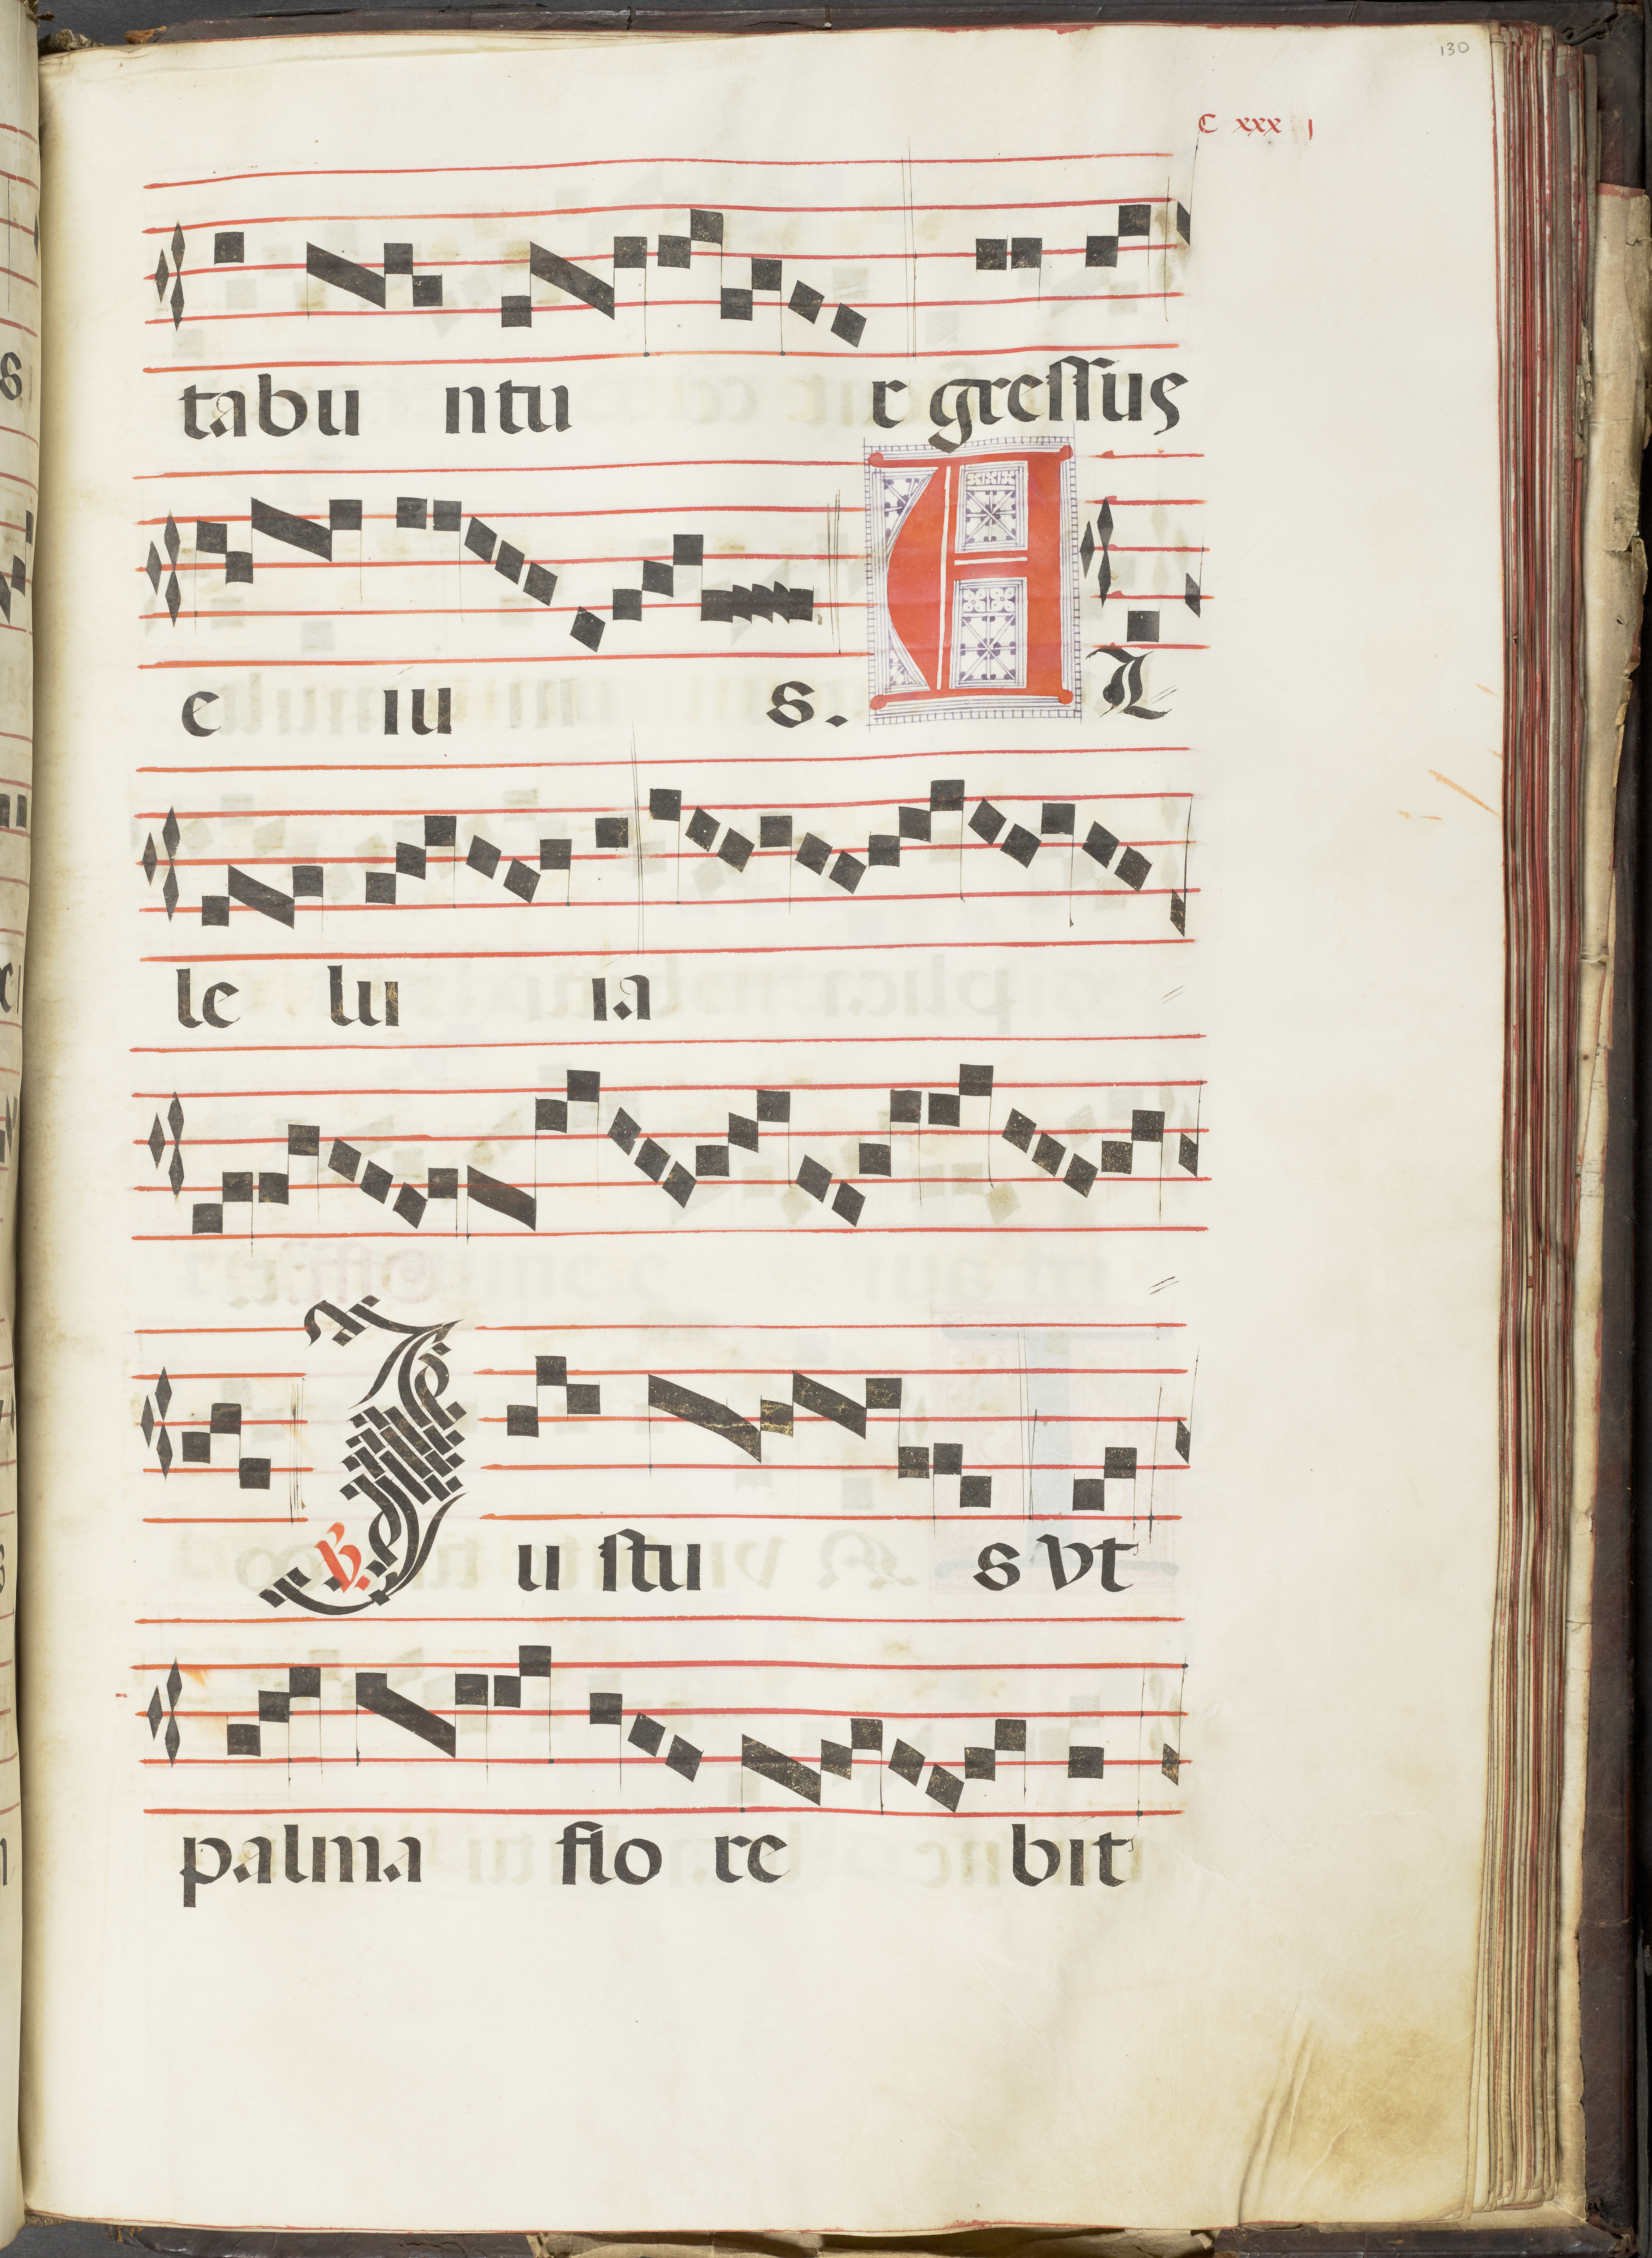 130
C xxx j
tabu ntu r gressus
e iu s. A L
le lu ia
℣. J u stu s vt
palma flo re bit